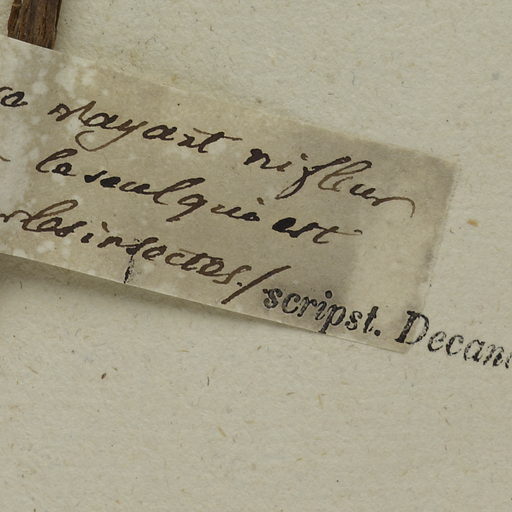 nayant ni fleur
le seul qui est
les insectes./
scripst. Decan